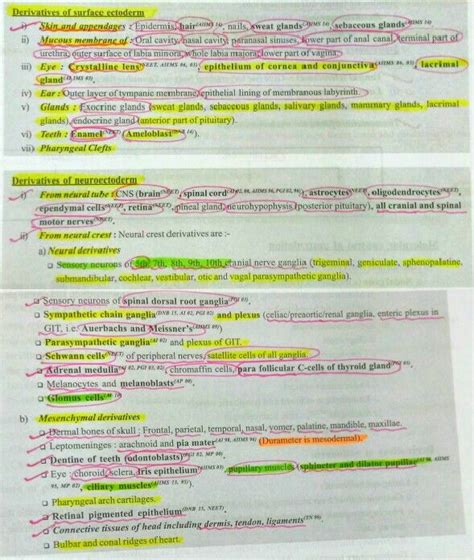 Derivatives of surface ectoderm
i) Skin and appendages : Epidermis, hair(AIIMS 16), nails, sweat glands(AIIMS 16), sebaceous glands(AIIMS 16)
ii) Mucous membrane of : Oral cavity, nasal cavity, paranasal sinuses, lower part of anal canal, terminal part of
urethra, outer surface of labia minora, whole labia majora, lower part of vagina.
iii) Eye : Crystalline lens(NEET, AIIMS 86, 83), epithelium of cornea and conjunctiva(AIIMS 86, 83), lacrimal
gland
iv) Ear : Outer layer of tympanic membrane, epithelial lining of membranous labyrinth.
v) Glands : Exocrine glands (sweat glands, sebaceous glands, salivary glands, mammary glands, lacrimal
glands), endocrine gland (anterior part of pituitary).
vi) Teeth : Enamel(NEET) (Ameloblast
vii) Pharyngeal Clefts
Derivatives of neuroectoderm
i) From neural tube : CNS (brain(NEET), spinal cord, astrocytes(NEET), oligodendrocytes(NEET),
ependymal cells(NEET), retina(NEET), pineal gland, neurohypophysis (posterior pituitary), all cranial and spinal
motor nerves(NEET).
ii) From neural crest : Neural crest derivatives are :-
a) Neural derivatives
Sensory neurons of 5th, 7th, 8th, 9th, 10th cranial nerve ganglia (trigeminal, geniculate, sphenopalatine,
submandibular, cochlear, vestibular, otic and vagal parasympathetic ganglia).
Sensory neurons of spinal dorsal root ganglia(PGI 85).
Sympathetic chain ganglia(DNB 15, AI 02, PGI 02) and plexus (celiac/preaortic/renal ganglia, enteric plexus in
GIT, i.e. Auerbachs and Meissner's
Parasympathetic ganglia(AI 02) and plexus of GIT.
Schwann cells(NEET) of peripheral nerves, satellite cells of all ganglia.
Adrenal medulla, chromaffin cells, para follicular C-cells of thyroid gland
Melanocytes and melanoblasts
Glomus cells
b) Mesenchymal derivatives
Dermal bones of skull : Frontal, parietal, temporal, nasal, vomer, palatine, mandible, maxillae.
Leptomeninges : arachnoid and pia mater(AI 98, AIIMS 96) (Durameter is mesodermal).
Dentine of teeth (odontoblasts)
Eye : choroid, sclera, iris epithelium, pupillary muscles (sphincter and dilator pupillae
ciliary muscles
Pharyngeal arch cartilages.
Retinal pigmented epithelium(DNB 15, NEET).
Connective tissues of head including dermis, tendon, ligaments
Bulbar and conal ridges of heart.